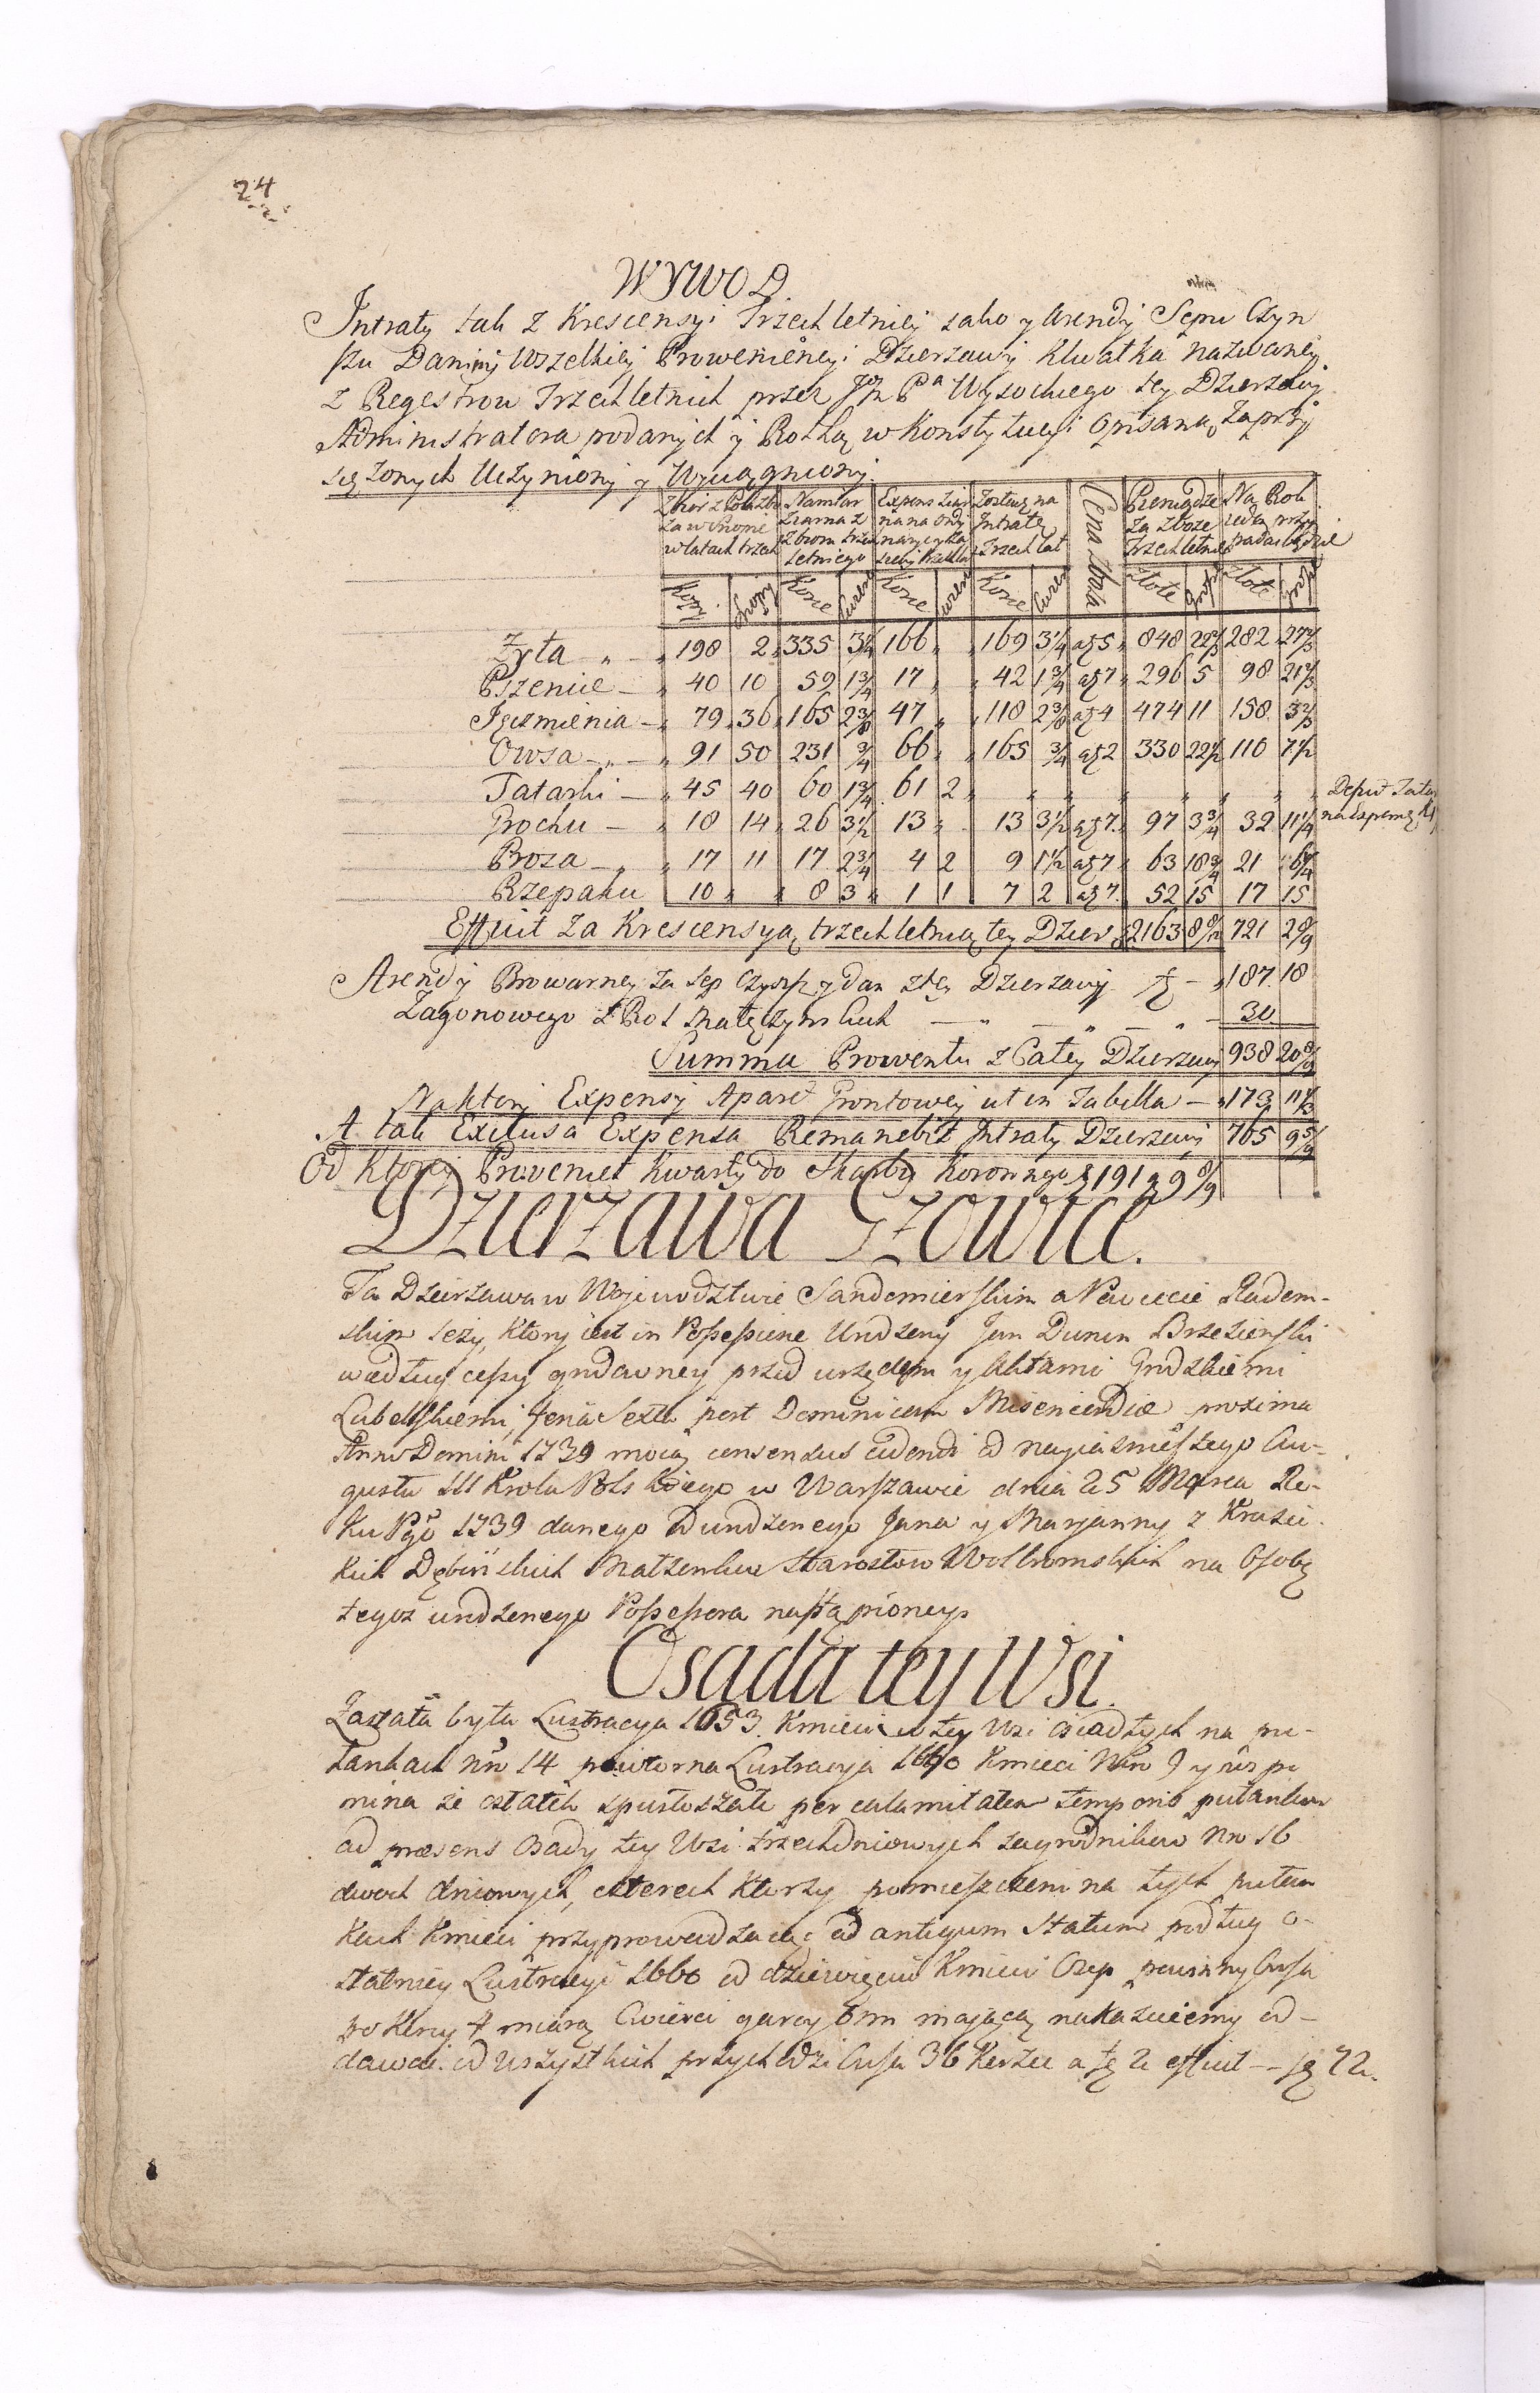 24
WYWOD.
Intraty tak z Krescensyi Trzechletniey iako y Arendy Sepu Czyn
szu Daniny wszelkiey Proweniencyi Dzierzawy Klwatka nazwaney
z Regestrow Trzechletnich przez Jmć Pa Wysockiego tey Dzierzawy
Administratora podanych y Rothą w Konstytucyi opisaną zaprzy
siężonych Uczyniony y Wyciągniony.
Zbior z Pola Zboża w Snopie w latach trzech | Namłot Ziarna z Zbioru trzech letniego | Expens Ziarna na Ordynaryę y Zasiewy | Zostaie na Intratę Trzech lat | Cena Zboża | Pieniądze za Zboże Trzechletnie | Na Rok ieden przypadać będzie
Kopy | Snopy | Korce | Cwierci | Korce | Cwierci | Korce | Cwierci | Złote | grosze | Złote | grosze
Zyta 198 2 335 3 1/4 166 169 3 1/4 a 5 848 22 1/2 282 27 1/2
Pszenice 40 10 59 1 3/4 17 42 1 3/4 a 7 296 5 98 21 2/3
Jęczmienia 79 36 165 2 3/8 47 118 2 3/8 a 4 474 11 158 3 2/3
Owsa 91 50 231 3/4 66 165 3/4 a 2 330 22 1/2 110 7 1/2
Tatarki 45 40 60 1 3/4 61 2
Grochu 18 14 26 3 1/2 13 13 3 1/2 a 7 97 3 3/4 32 11 1/4
Prosa 17 11 17 2 3/4 4 2 9 1 1/2 a 7 63 18 3/4 21 6 1/4
Rzepaku 10 8 3 1 1 7 2 a 7 52 15 17 15
Efficit za Krescensyą trzechletnią tey Dzier 2163 721
Arendy Browarney za Sep Czynsz y Dan z tey Dzierzawy 187 18
Zagonowego z Rol 30
Summa Prowentu z Całey Dzierzawy 938 20 8/9
Na ktory Expensy Apart Grontowey ut in Tabella 173 11 1/3
A tak Exclusa Expensa Remanebit Intraty Dzierzawy 765 9 5/9
Od ktorey Proveniet Kwarty do Skarbu Koronnego 191 9 8/9
Dzierzawa Gzowice.
Ta Dzierzawa w Woiewodztwie Sandomierskim a Powiecie Radom-
skim leży, ktory iest in Possessione Urodzony Jan Dunin Brzezienski
według cessyi grodowney przed urzędem y Aktami Grodzkiemi
Lubelskiemi, feria Sexta post Dominicam Misericordiae proxima
Anno Domini 1739 mocą consensus cedendi od nayiaśnieyszego Au-
gusta III Krola Polskiego w Warszawie dnia 25 Marca Ro-
ku Pgo 1739 danego od urodzonego Jana y Maryanny z Krasic-
kich Dębińskich Małżonkow Starostow Wolbromskich na Osobę
tegoż urodzonego Possessora nastąpioney.
Osada tey Wsi.
Zastała była Lustracya 1653. Kmieci w tey Wsi osiadłych na pu-
łankach Nro 14 powtorna Lustracya 1660 Kmieci Nro 9 y wspo
mina że ostatek spustoszało per calamitatem temporis pułankow
ad praesens Osady tey Wsi trzechdniowych zagrodnikow Nro 16
dwoch dniowych, czterech ktorzy pomieszczeni na tych pułan
kach Kmieci przyprowadzaiąc ad antiquum Statum podług o-
statniey Lustracyi 1660 od dziewięciu Kmieci Osep powinny Owsa
po Korcy 4 miarą Cwierci garcy 8m maiącą nakazuiemy od-
dawać. od wszystkich przychodzi Owsa 36 Korzec a fl 2 efficit — fl 72.